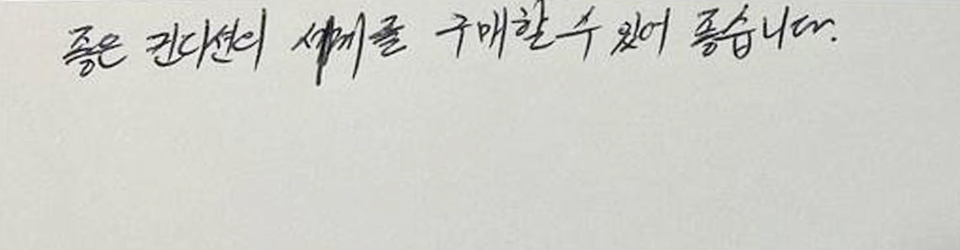 좋은 컨디션의 구매할 수 있어 좋습니다.